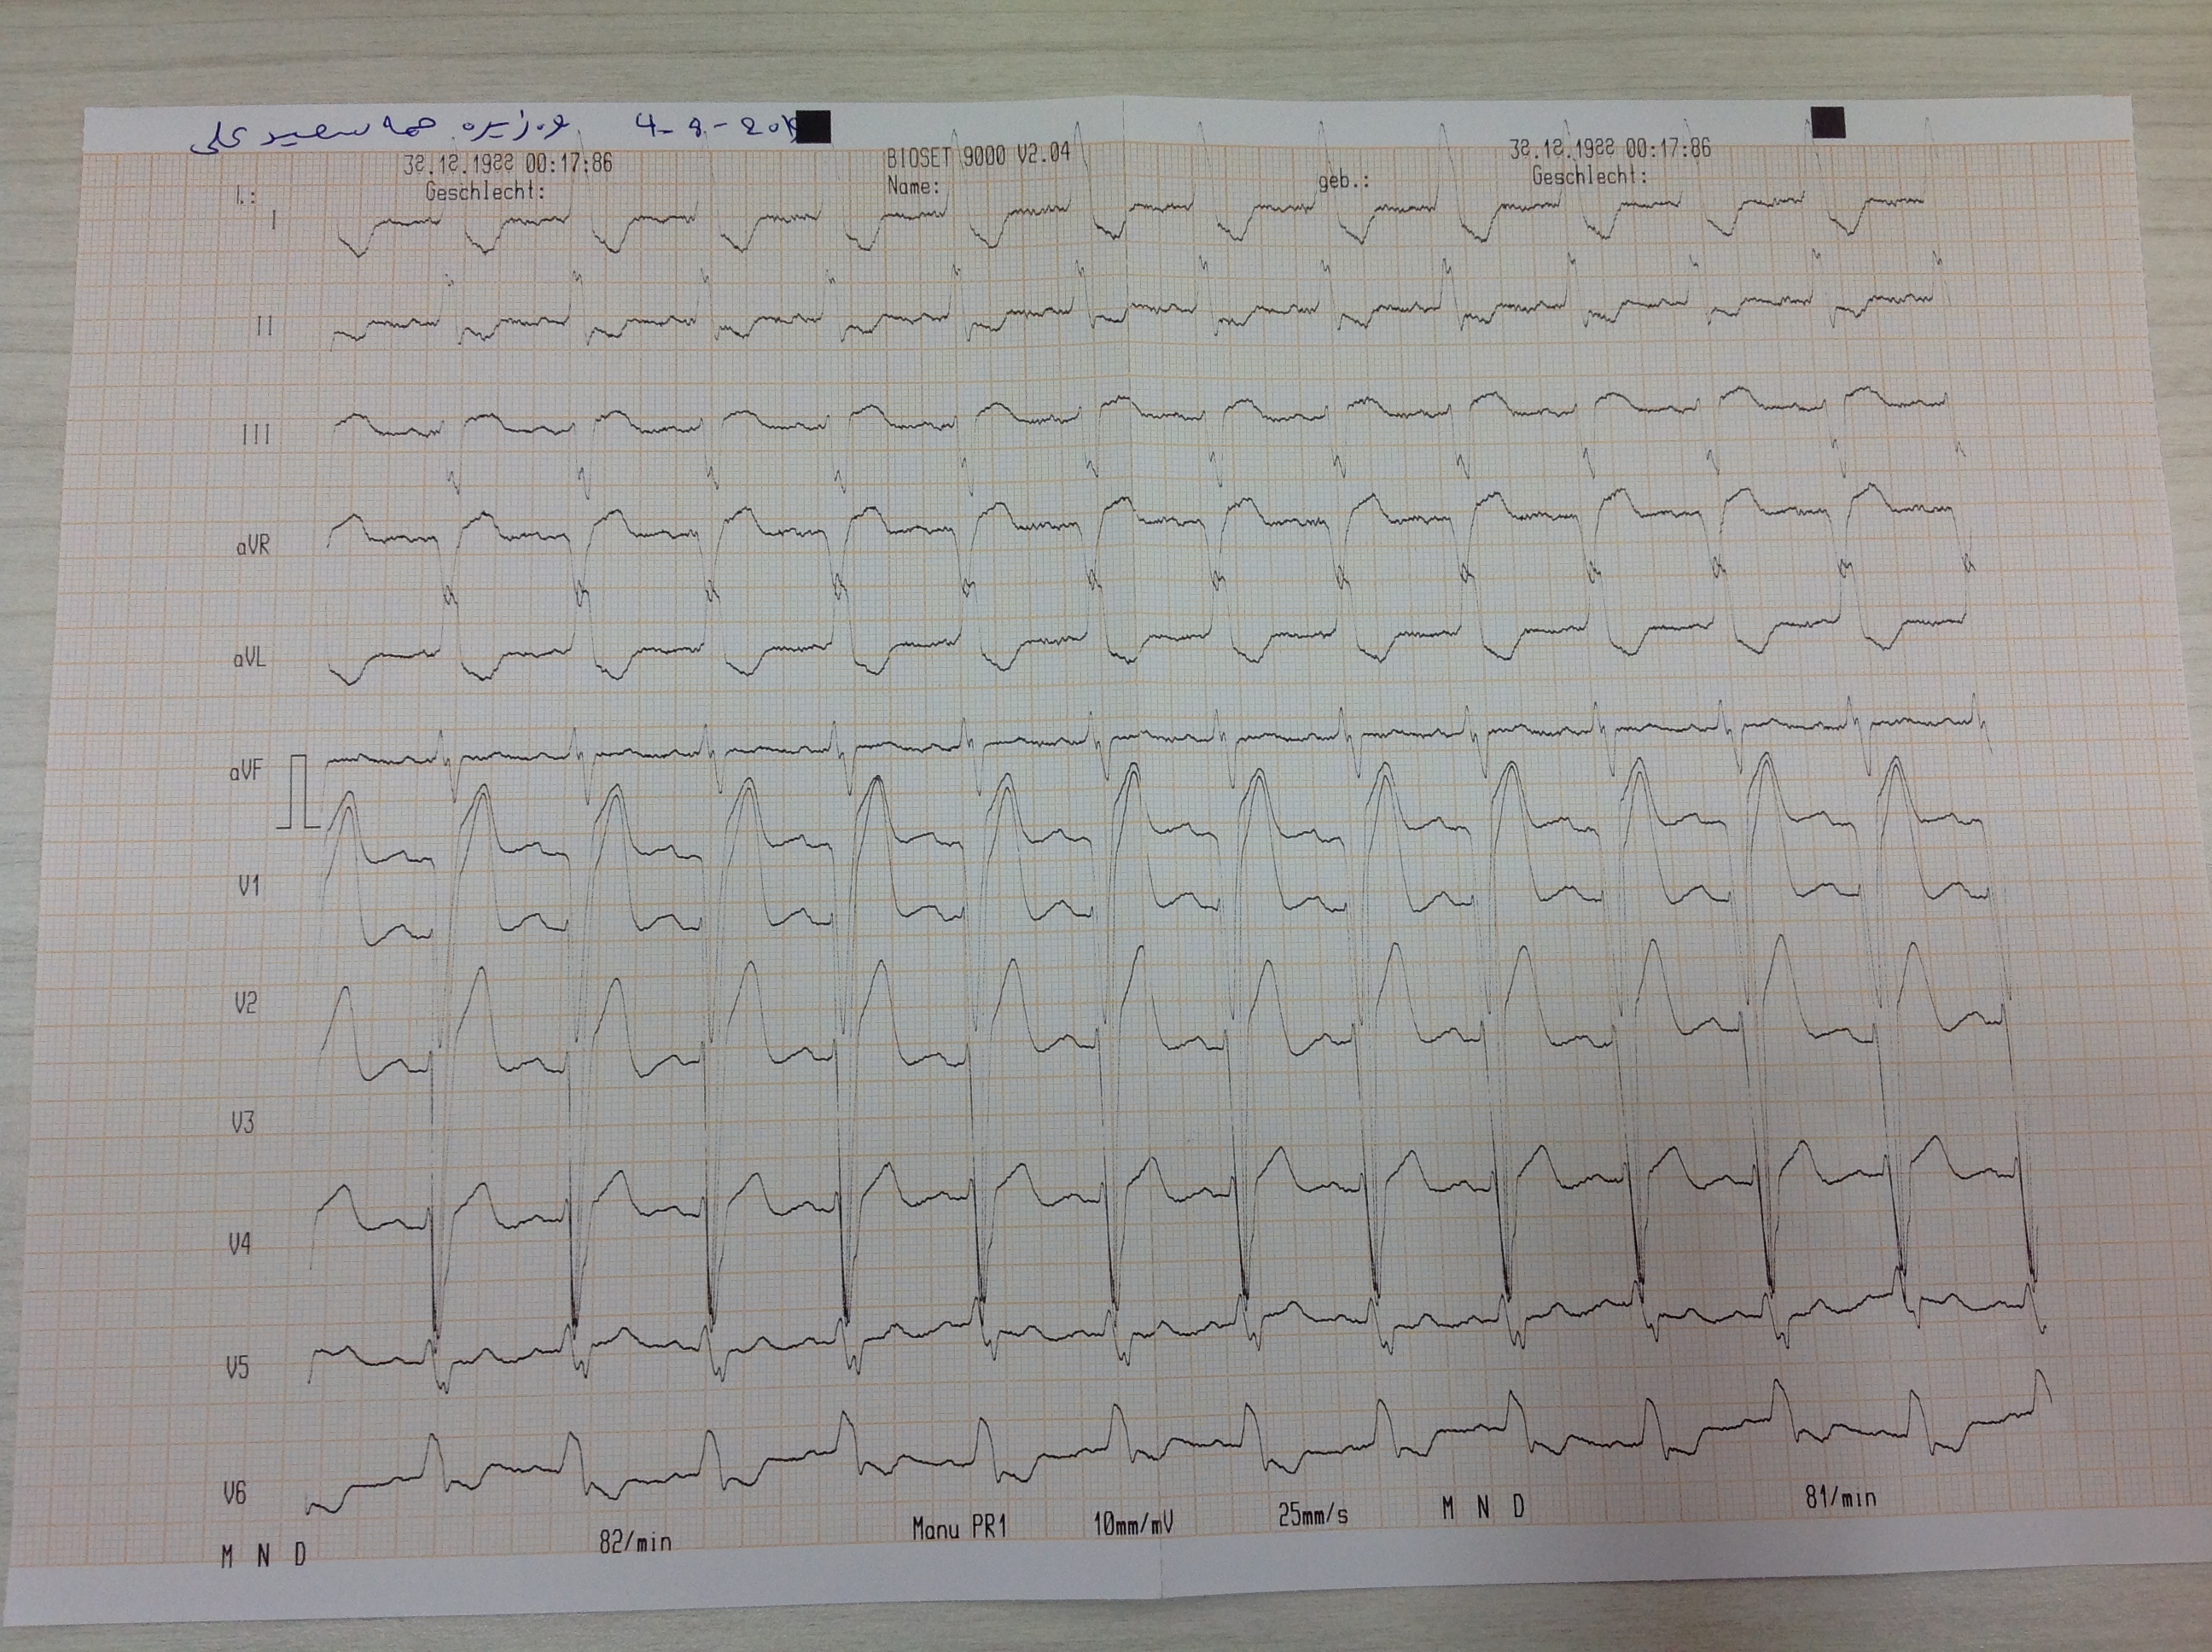 وەزیرە حمە سعید علی 4-8-201
32.12.1922 00:17:86 BIOSET 9000 V2.04 32.12.1922 00:17:86
Geschlecht: Name: geb.: Geschlecht:
I
II
III
aVR
aVL
aVF
V1
V2
V3
V4
V5
V6
M N D 82/min Manu PR1 10mm/mV 25mm/s M N D 81/min